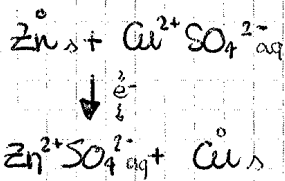 Zn⁰ s + Cu²⁺ SO₄²⁻ aq
e⁻
Zn²⁺ SO₄²⁻ aq + Cu⁰ s